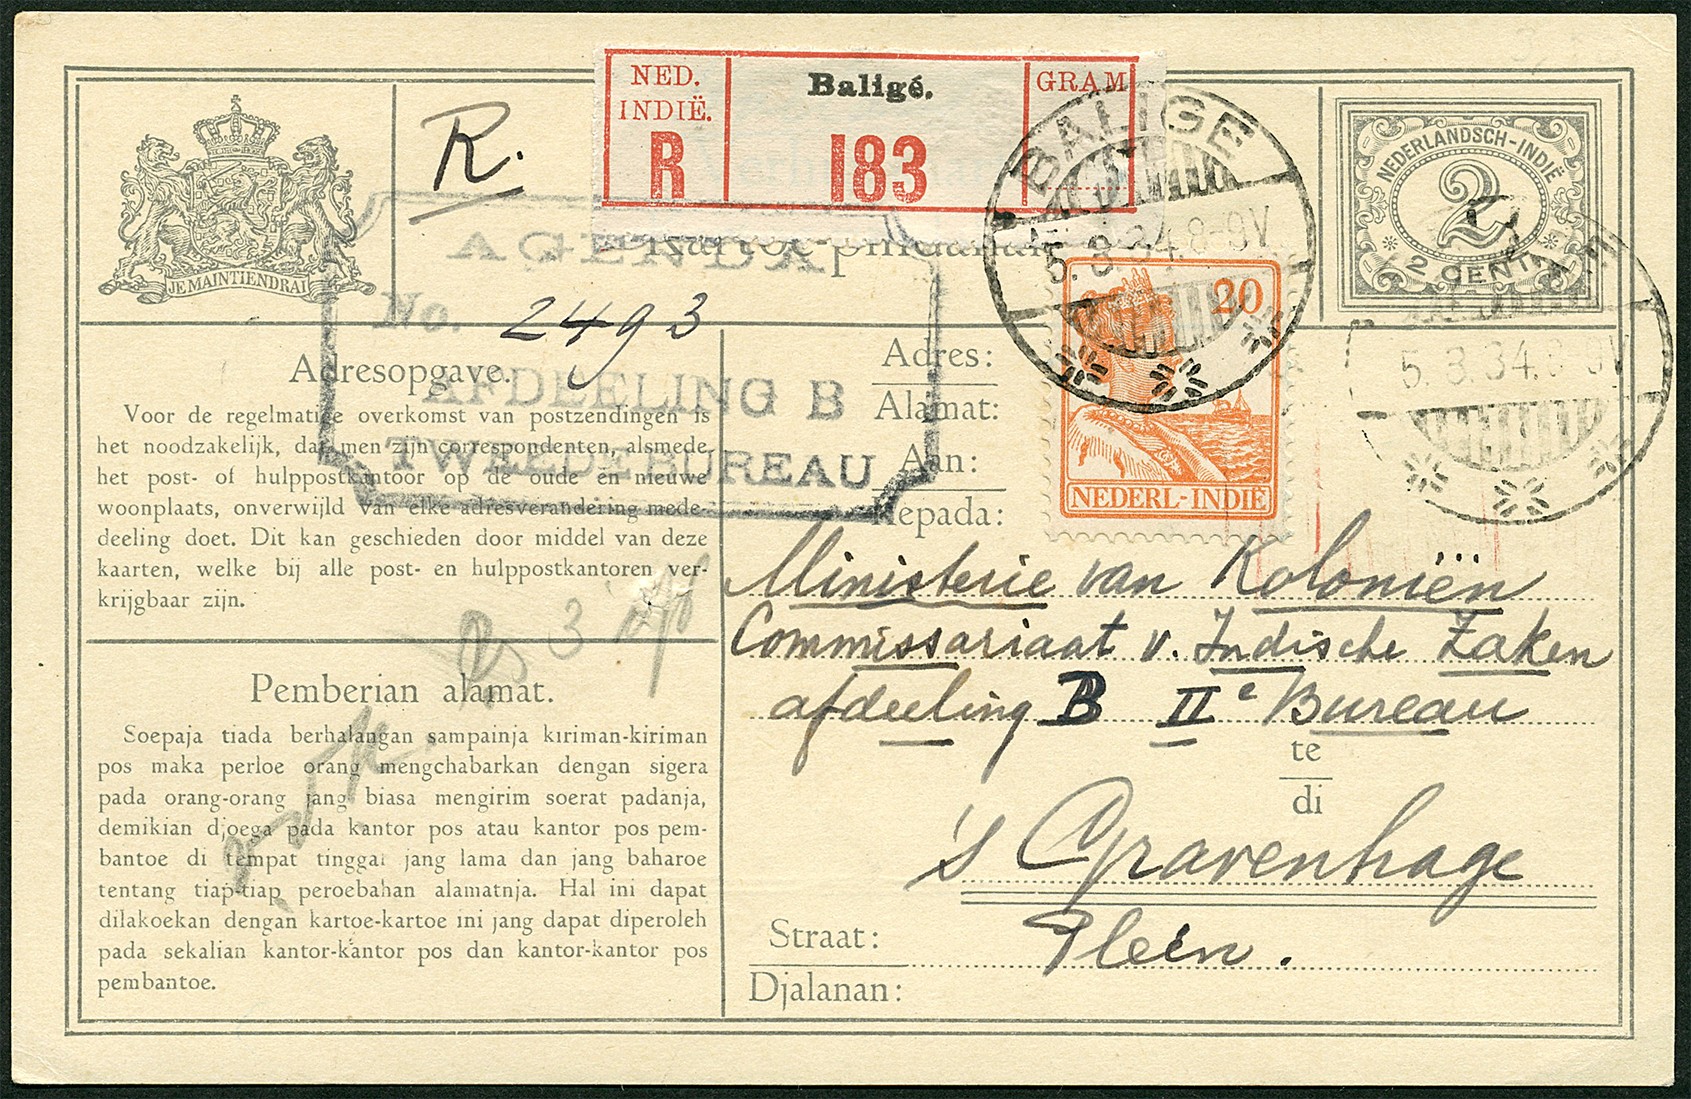 NED.
INDIË.
R
Baligé.
183
GRAM
R.
JE MAINTIENDRAI
BALIGE
5.3.34.8-9V
NEDERLANDSCH-INDIË
2
2 CENT
5.3.34.8-9V
20
NEDERL-INDIË
AGENDA
No. 2493
AFDEELING B
TWEEDE BUREAU
Adresopgave.
Voor de regelmatige overkomst van postzendingen is
het noodzakelijk, dat men zijn correspondenten, alsmede
het post- of hulppostkantoor op de oude en nieuwe
woonplaats, onverwijld van elke adresverandering mede-
deeling doet. Dit kan geschieden door middel van deze
kaarten, welke bij alle post- en hulppostkantoren ver-
krijgbaar zijn.
Pemberian alamat.
Soepaja tiada berhalangan sampainja kiriman-kiriman
pos maka perloe orang mengchabarkan dengan sigera
pada orang-orang jang biasa mengirim soerat padanja,
demikian djoega pada kantor pos atau kantor pos pem-
bantoe di tempat tinggal jang lama dan jang baharoe
tentang tiap-tiap peroebahan alamatnja. Hal ini dapat
dilakoekan dengan kartoe-kartoe ini jang dapat diperoleh
pada sekalian kantor-kantor pos dan kantor-kantor pos
pembantoe.
Adres:
Alamat:
Aan:
Kepada:
Ministerie van Koloniën
Commissariaat v. Indische Zaken
afdeeling B IIe Bureau
te
di
's Gravenhage
Straat:
Plein.
Djalanan: